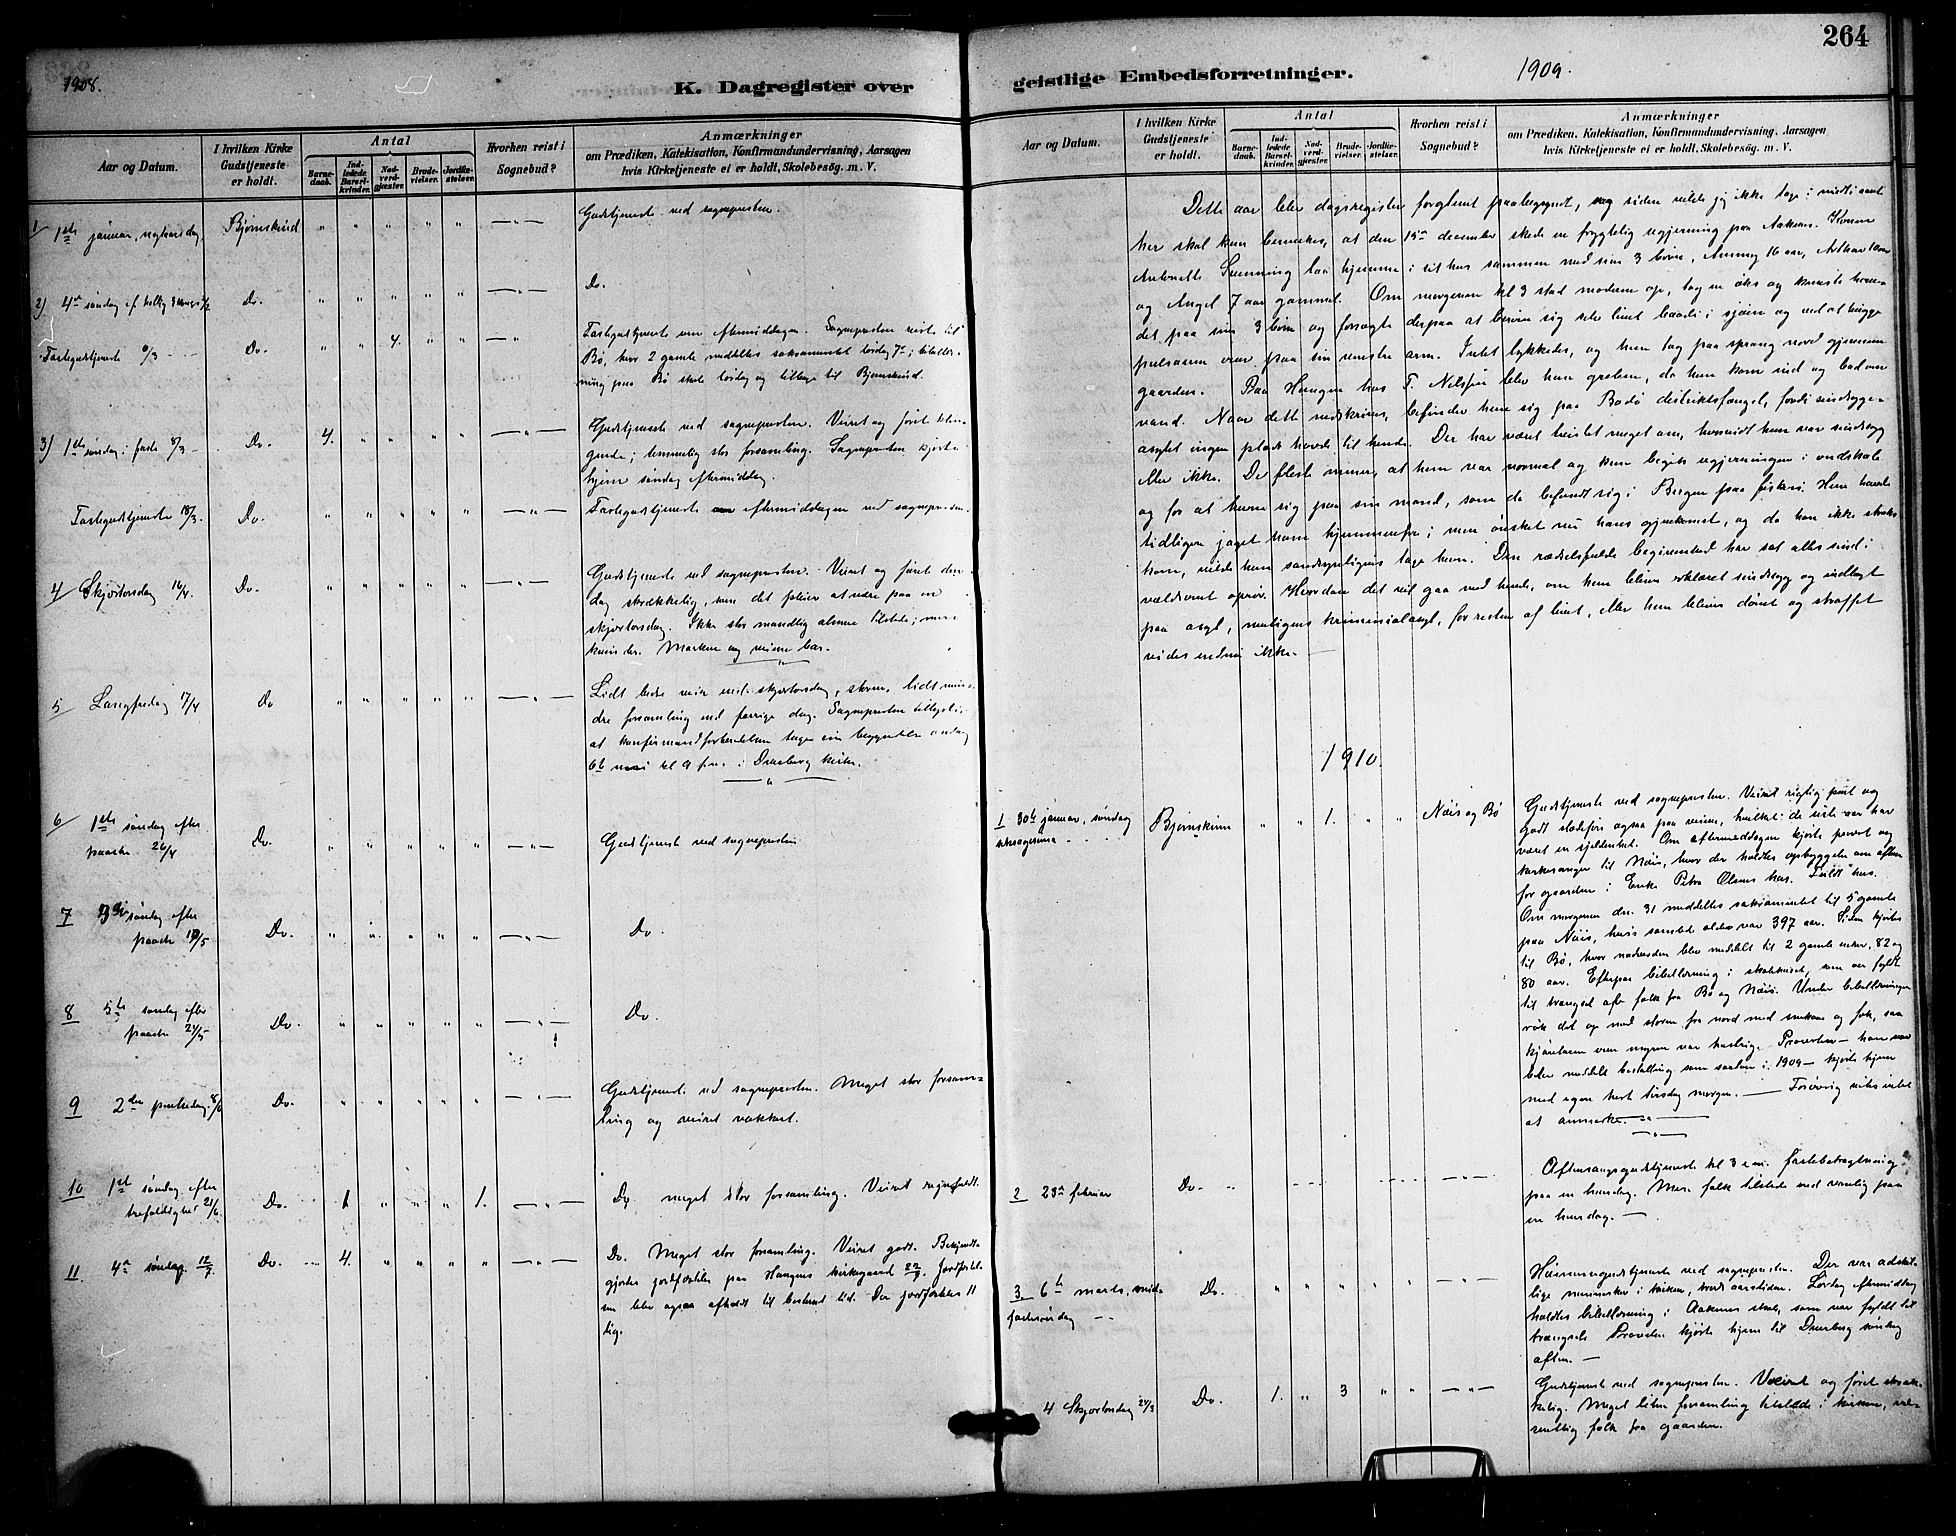 1908.
K. Dagregister over
Aar og Datum.
I hvilken Kirke Gudstjeneste er holdt.
Antal
Barnedaab.
Indledede Barselkvinder.
Nadverdgjæster.
Brudevielser.
Jordfæstelser.
Hvorhen reist i Sognebud?
Anmærkninger
om Prædiken, Katekisation, Konfirmandundervisning, Aarsagen
hvis Kirketjeneste ei er holdt, Skolebesøg. m. V.
1/ 1ste januar, nytaarsdag. Bjørnskind " " " " " —"— Gudstjeneste ved sognepresten.
2) 4de søndag ef. Do. " " " " " —"— Do.
Fastegudstjeneste 6/3 — Do. " " 4. " " —"— Fastegudstjeneste om eftermiddagen. Sognepresten reiste til
Bø, hvor 2 gamle meddeltes saksamentet lørdag 7de; bibellæs-
ning paa Bø skole lørdag og tilbage til Bjørnskind.
3) 1ste søndag i faste 8/3 — Do. 4. " " " " —"— Gudstjeneste ved sognepresten. Veiret og føret
; temmelig stor forsamling. Sognepresten kjørte
hjem søndag eftermiddag.
Fastegudstjeneste 18/3. Do. " " " " " —"— Fastegudstjeneste eftermiddagen ved sognepresten.
4/ Skjærtorsdag 16/4. Do. " " " " " —"— Gudstjeneste ved sognepresten. Veiret og føret den-
dag skrækkelig, som det pleier at være paa en
skjærtorsdag. Ikke stor mandlig almue tilstede; mere
kvinder. Marken og veiene bar.
5/ Langfredag 17/4 Do " " " " " —"— Lidt bedre veir end skjærtorsdag, storm. Lidt min-
dre forsamling end forrige dag. Sognepresten tillyste,
at konfirmandforberedelsen tager sin begyndelse onsdag
6te mai kl 9 fm. i Dverberg kirke.
6/ 1ste søndag efter
paaske 26/4 Do. " " " " " —"— Gudstjeneste ved sognepresten
7 3die søndag efter
paaske 10/5 Do. " " " " " —"— Do.
8 5te søndag efter
paaske 24/5 Do. " " " " " —"— Do.
9 2den pinsedag 8/6 Do. " " " " " —"— Gudstjeneste ved sognepresten. Meget stor forsam-
ling og veiret vakkert.
10 1ste søndag efter
trefoldighed 21/6 Do. 1 " " " 1. —"— Do, meget stor forsamling. Veiret regnfuldt.
11 4de søndag 12/7 Do. 4. " " " " —"— Do. Meget stor forsamling. Veiret godt. Bekjendt-
gjortes jordfæstelse paa Haugnes kirkegaard 22/7. Jordfæstel-
sen blev ogsaa afholdt til bestemt tid. Der jordfæstedes 11
lig.
264
geistlige Embedsforretninger.
1909.
Aar og Datum.
I hvilken Kirke Gudstjeneste er holdt.
Antal
Barnedaab.
Indledede Barselkvinder.
Nadverdgjæster.
Brudevielser.
Jordfæstelser.
Hvorhen reist i Sognebud?
Anmærkninger
om Prædiken, Katekisation, Konfirmandundervisning, Aarsagen
hvis Kirketjeneste ei er holdt, Skolebesøg. m. V.
Dette aar blev dagsregister forglemt paabegyndt, og siden vilde jeg ikke tage i midten
her skal kun bemerkes, at den 15de december skede en frygtelig ugjerning paa Aaknes. Konen
Antonette laa hjemme i sit hus sammen med sine 3 børn, Ammy 16 aar, Arthur
og Angel 7 aar gammel. Om morgenen kl 3 stod moderen op, tog en øks og knuste
det paa sine 3 børn og forsøgte derpaa at berøve sig selv livet baade i sjøen og ved at hugge
pulsaaren over paa sin venstre arm. Intet lykkedes, og hun tog paa sprang nord gjennem
gaarden. Paa Haugen hos T. Nilssen blev hun greben, da hun kom ind og bad om
vand. Naar dette nedskrives, befinder hun sig paa Bodø distriktsfængsel, fordi sindssyge-
asylet ingen plads havde til hende. Der har været tvistet meget om, hvorvidt hun var sindssyg
eller ikke. De fleste mener, at hun var normal og kun begik ugjerningen i ondskab
og for at hevne sig paa sin mand, som da befandt sig i Bergen paa fiskeri. Hun havde
tidligere jaget ham hjemmefra; men ønsket nu hans gjenkomst, og da han ikke straks
kom, vilde hun sandsynligvis tage hevn. Den rædselsfulde begivenhed har sat alles sind i
voldsomt oprør. Hvordan det vil gaa med hende, om hun bliver erklæret sindssyg og indlagt
paa asyl, muligens kriminalasyl, for resten af livet, eller hun bliver dømt og straffet
vides endnu ikke.—
1910.
1 30te januar, søndag
seksagesima — Bjørnskinn " " 1. " " Nøis og Bø Gudstjeneste ved sognepresten. Veiret rigtig pent og
godt slædeføre ogsaa paa veiene, hvilket i de siste aar har
været en sjeldenhet. Om eftermiddagen kjørte provst og
kirkesanger til Nøis, hvor der holdtes opbyggelse om aftenen
for gaarden i Enke Petra Olsens hus. Fuldt hus.
Om morgenen den 31 meddeltes saksamentet til 5 gamle
paa Nøis, hvis samlede alder var 397 aar. Siden kjørtes
til Bø, hvor nadverden blev meddelt til 2 gamle enker, 82 og
80 aar. Efterpaa bibellæsning i skolehuset, som var fyldt
til trængsel af folk fra Bø og Nøis. Under bibellæsningen
røk det op med storm fra nord med snekave og fok, saa
kjøreturen over myren var haabløs. Provsten — han var
bleven meddelt bestalling som saadan i 1909 — kjørte hjem
med egen hest tirsdag morgen. — Forøvrig intet
at anmærke.
2 23de februar Do. Aftensangsgudstjeneste kl 3 em. Fastebetragtning
paa en hverdag. Mere folk tilstede end vanlig paa
en hverdag. —
3. 6te marts, mid-
fastesøndag — Do. " " " " " —"— Høimessegudstjeneste ved sognepresten. Der var adskil-
lige mennesker i kirken, trods aarstiden. Lørdag eftermiddag
holdtes bibellæsning i Aaknes skole, som var fyldt til
trængsel. Provsten kjørte hjem til Dverberg søndag
aften. —
4 Skjærtorsdag 24/3 Do. 1. " 3 " " —"— Gudstjeneste ved sognepresten. Veiret og føret skræk-
kelig. Meget liten forsamling tilstede i kirken, væ-
sentlig folk fra gaarden.